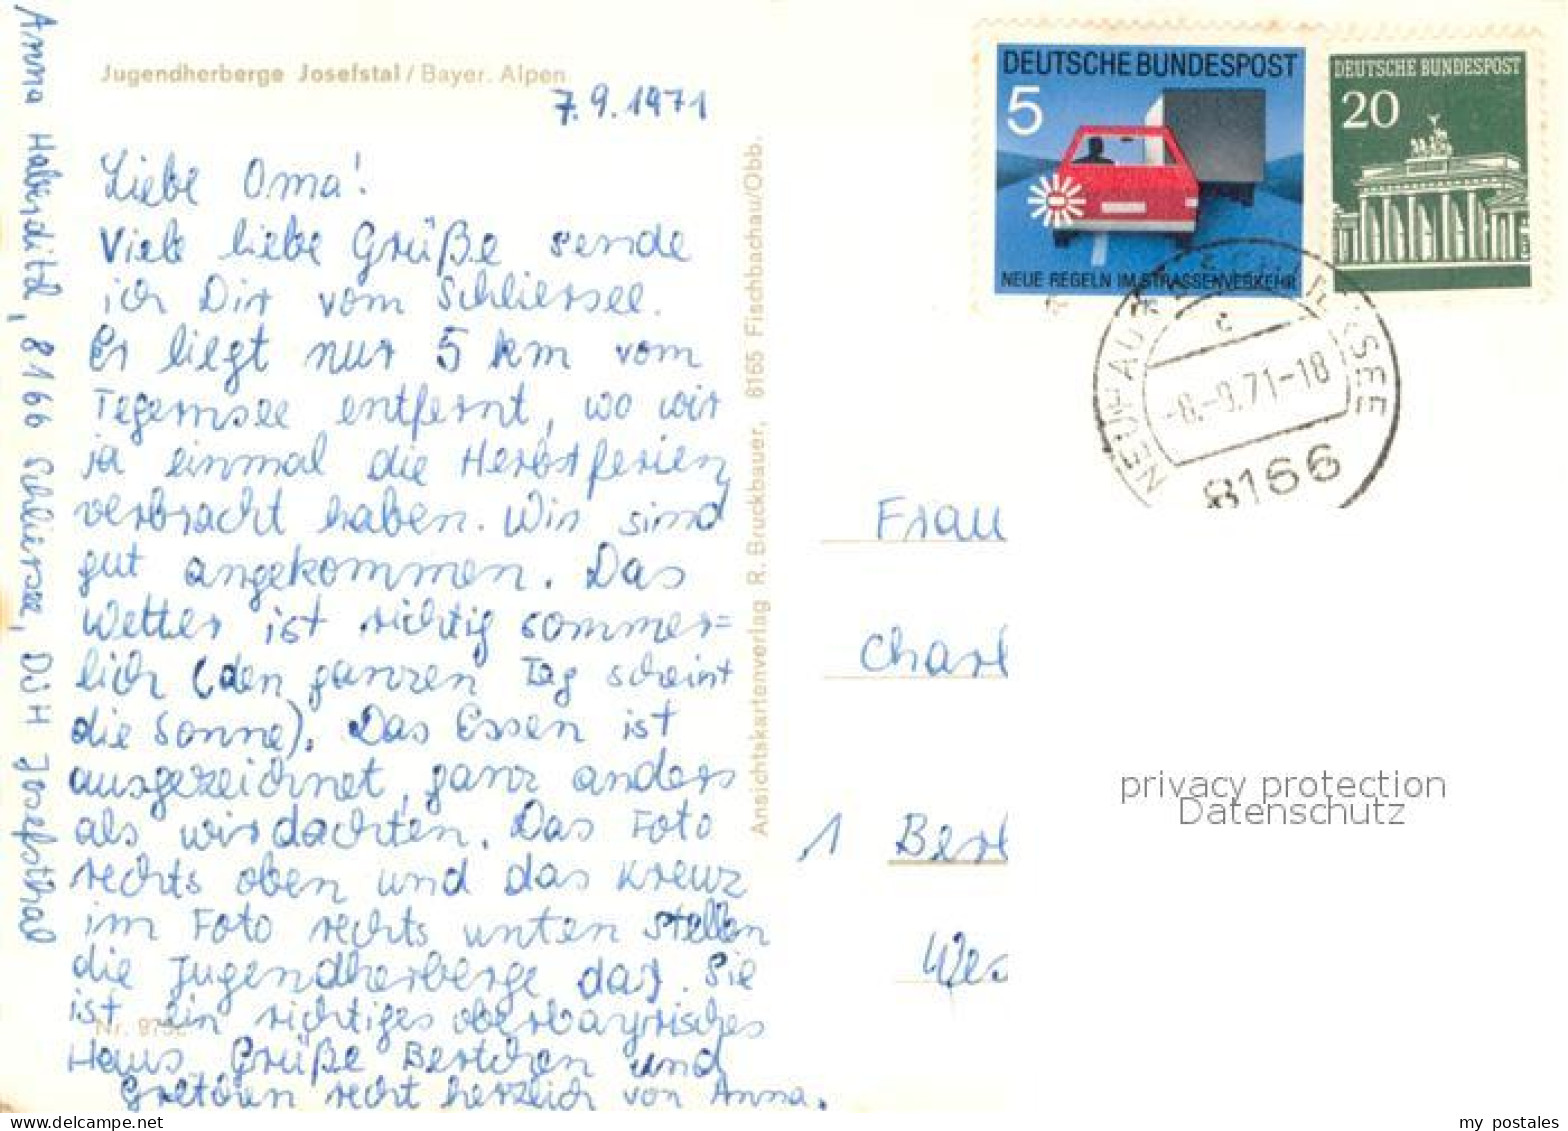 Jugendherberge Josefstal / Bayer. Alpen
7.9.1971
Liebe Oma!
Viele liebe Grüße sende
ich Dir vom Schliersee.
Er liegt nur 5 km vom
Tegernsee entfernt, wo wir
ja einmal die Herbstferien
verbracht haben. Wir sind
gut angekommen. Das
Wetter ist richtig sommer=
lich (den ganzen Tag scheint
die Sonne). Das Essen ist
ausgezeichnet, ganz anders
als wir dachten. Das Foto
rechts oben und das Kreuz
im Foto rechts unten stellen
die Jugendherberge dar. Sie
ist ein richtiges oberbayrisches
Haus. Grüße Bertchen und
Gretchen recht herzlich von Anna.
Anna Haberditzl, 8166 Schliersee, DJH Josefsthal
Ansichtskartenverlag R. Bruckbauer, 8165 Fischbachau/Obb.
DEUTSCHE BUNDESPOST
5
NEUE REGELN IM STRASSENVERKEHR
DEUTSCHE BUNDESPOST
20
NEUHAUS
-8.-9.71-18
8166
Frau
Charl
1 Berl
Wes
privacy protection
Datenschutz
my postales
www.delcampe.net